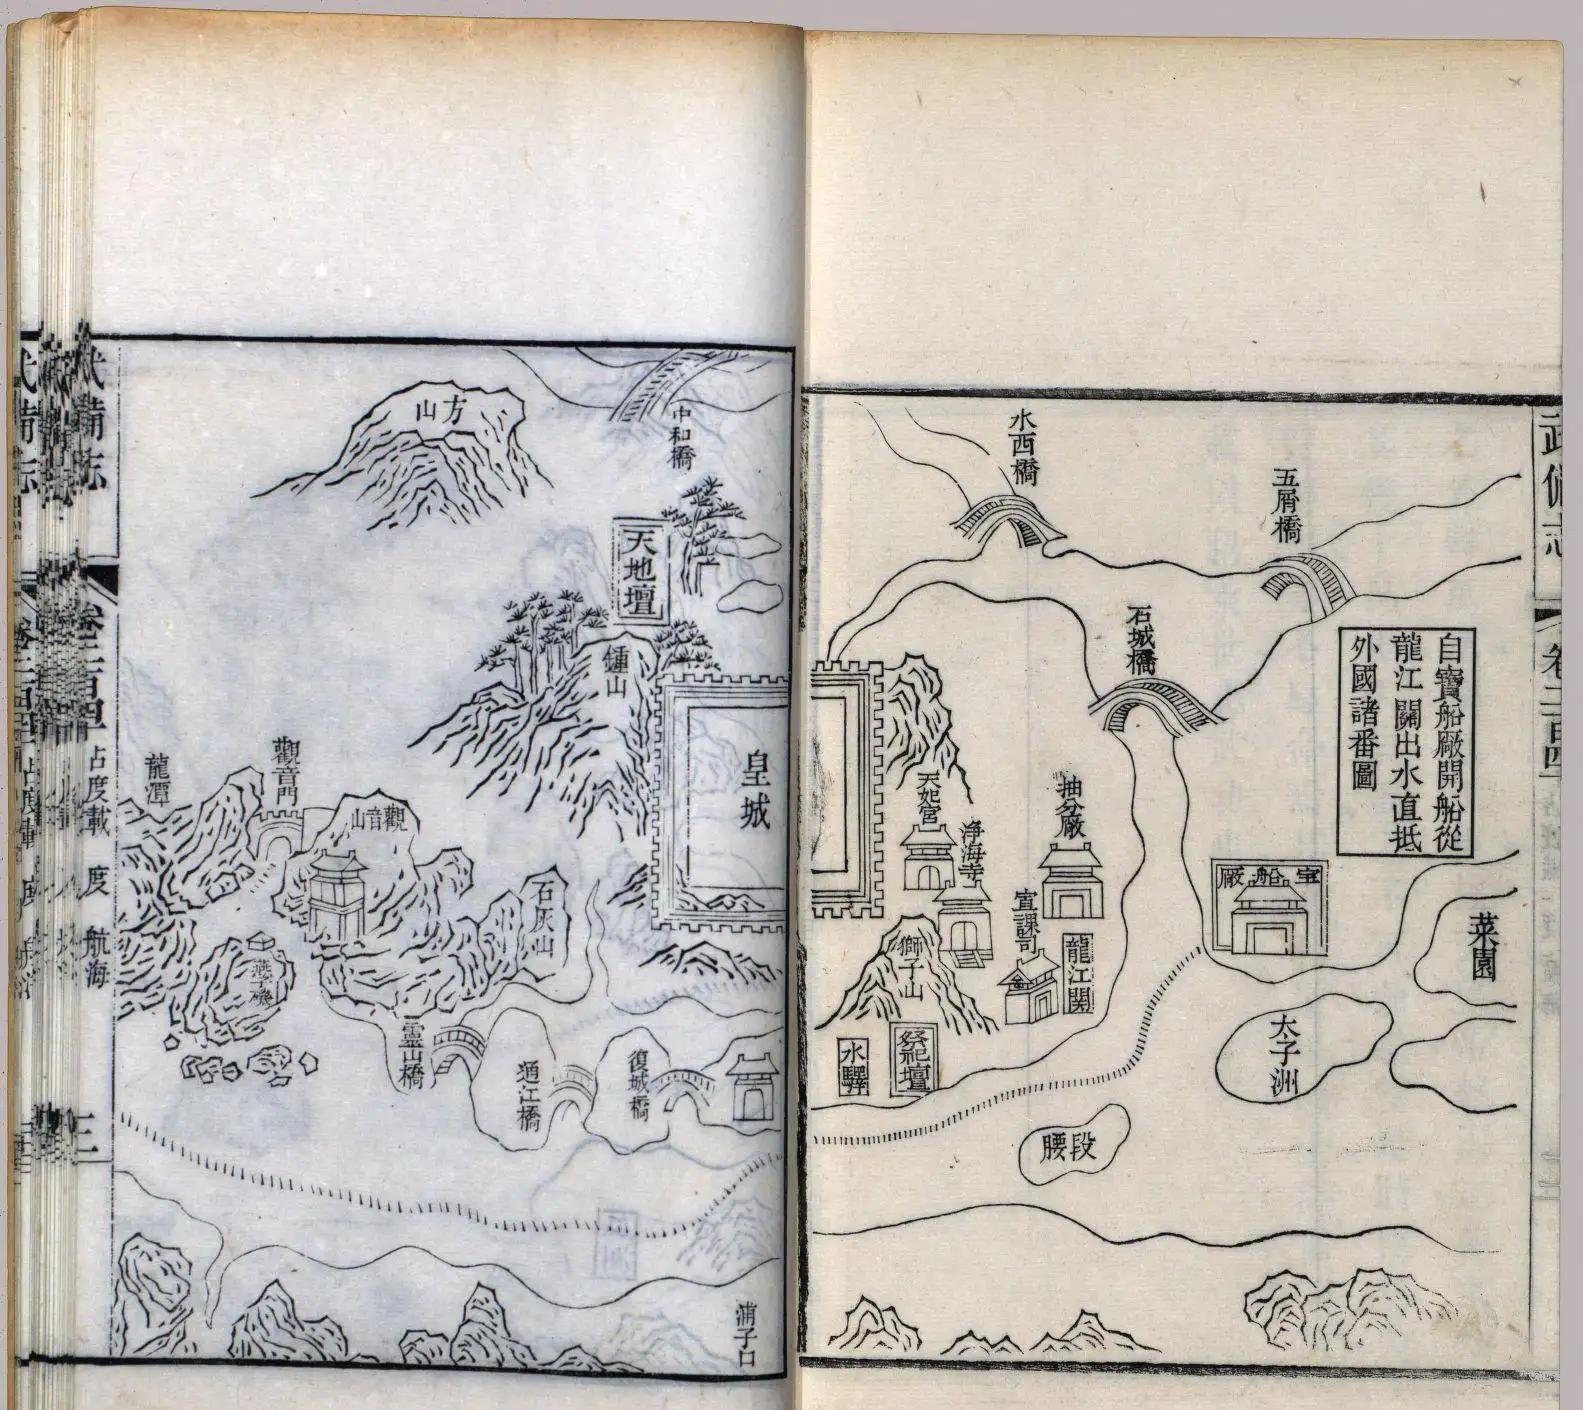 武備志
自寶船厰開船從
龍江關出水直抵
外國諸番圖
五屑橋
水西橋
石城橋
菜園
宝船厰
太子洲
抽分厰
龍江関
宣課司
淨海寺
天妃宮
獅子山
祭祀壇
水驛
腰段
中和橋
方山
天地壇
鍾山
皇城
石灰山
觀音山
觀音門
龍潭
燕子磯
復城橋
通江橋
靈山橋
浦子口
占度載 度 航海
三